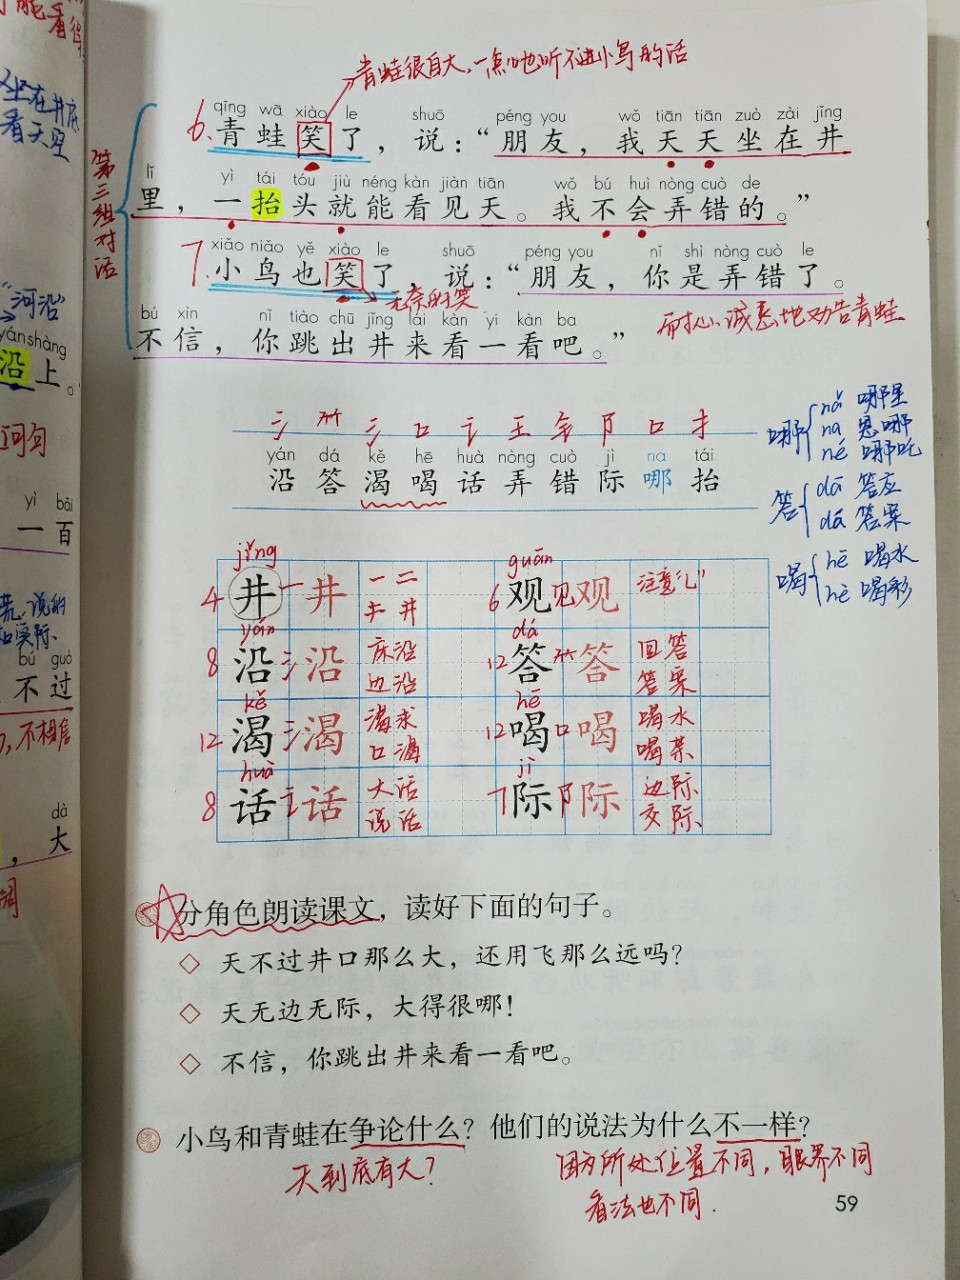 能看得
坐在井底
看天空
"河沿"
yán shàng
沿上。
问句
yì bǎi
一百
说的
和实际
bú guò
不过
不相信
dà
，大
词
青蛙很自大，一点也听不进小鸟的话
第三组对话
qīng wā xiào le shuō péng you wǒ tiān tiān zuò zài jǐng
6、青蛙笑了，说：“朋友，我天天坐在井
lǐ yì tái tóu jiù néng kàn jiàn tiān wǒ bú huì nòng cuò de
里，一抬头就能看见天。我不会弄错的。”
xiǎo niǎo yě xiào le shuō péng you nǐ shì nòng cuò le
7.小鸟也笑了，说：“朋友，你是弄错了。
无奈的笑
耐心、诚恳地劝告青蛙
bú xìn nǐ tiào chū jǐng lái kàn yi kàn ba
不信，你跳出井来看一看吧。”
氵 ⺮ 氵 口 讠 王 钅 阝 口 扌
yán dá kě hē huà nòng cuò jì na tái
沿答渴喝话弄错际哪抬
哪 nǎ 哪里
na 恩哪
né 哪吒
答 dā 答应
dá 答案
喝 hē 喝水
hè 喝彩
jǐng guān
4 井 一 井 一 二 キ 井 6 观 见 观 注意"乀"
yán dá
8 沿 氵 沿 床沿 边沿 12 答 ⺮ 答 回答 答案
kě hē
12 渴 氵 渴 渴求 口渴 12 喝 口 喝 喝水 喝茶
huà jì
8 话 讠 话 大话 说话 7 际 阝 际 边际 交际
分角色朗读课文，读好下面的句子。
◇ 天不过井口那么大，还用飞那么远吗？
◇ 天无边无际，大得很哪！
◇ 不信，你跳出井来看一看吧。
小鸟和青蛙在争论什么？他们的说法为什么不一样？
天到底有大？
因为所处位置不同，眼界不同
看法也不同.
59